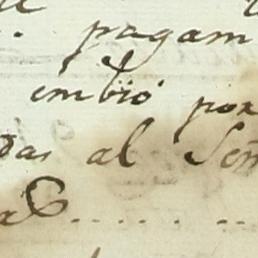 pagam
embió por
das al Señ